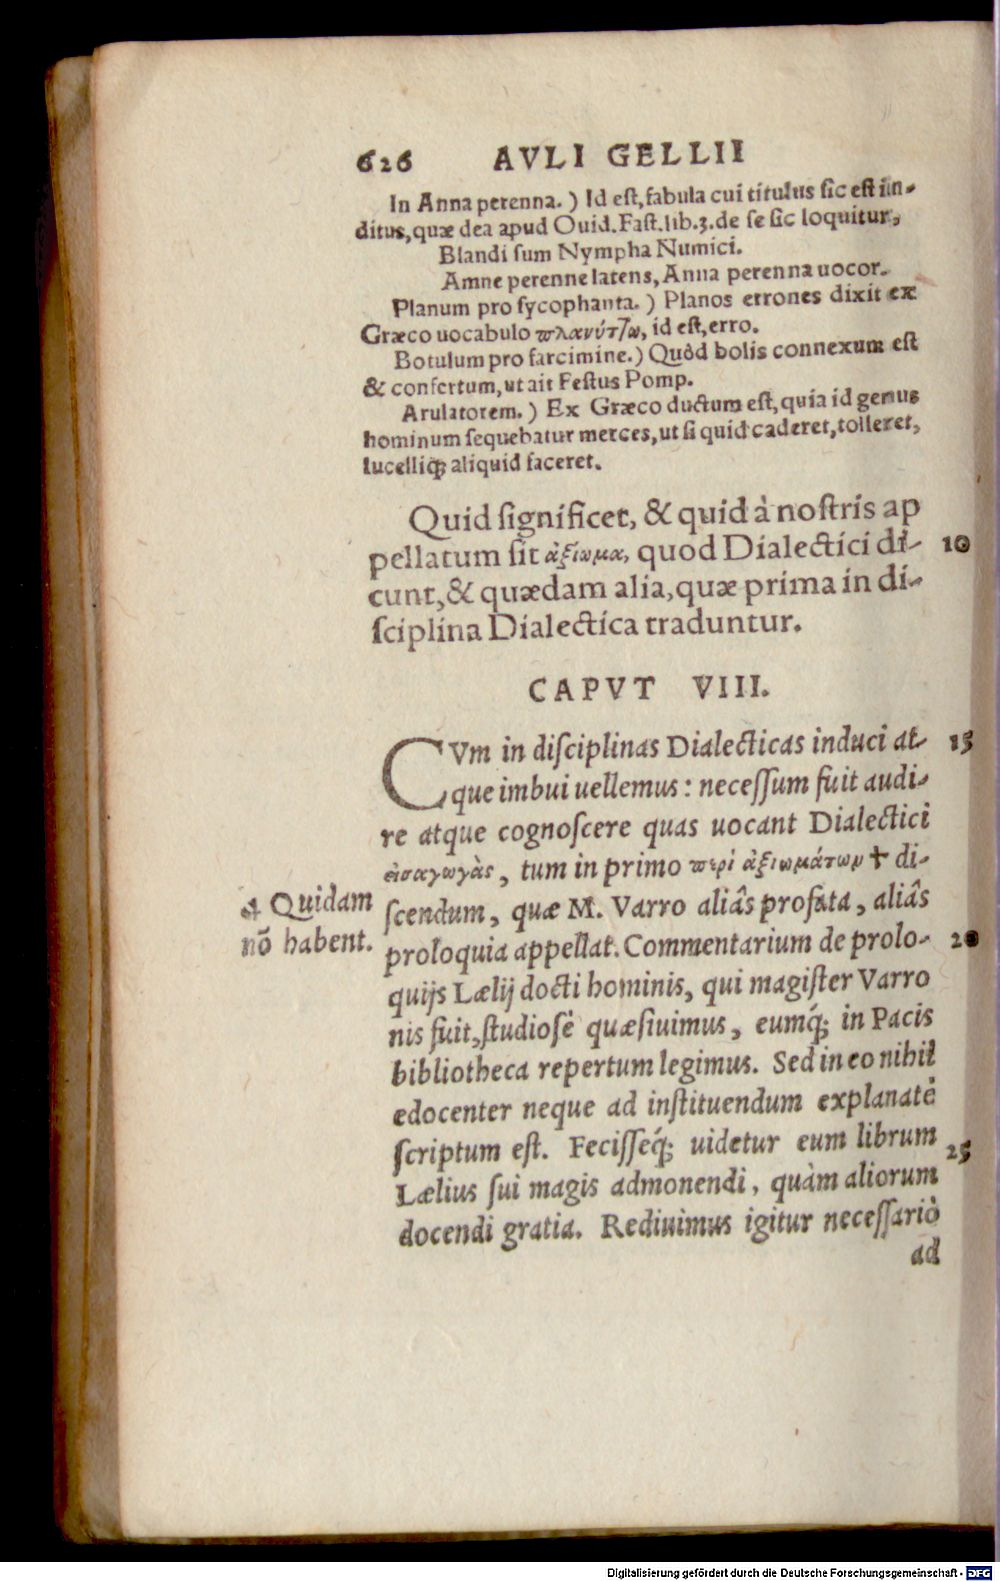 626 AVLI GELLII
In Anna perenna. ) Id est, fabula cui titulus sic est in-
ditus, quæ dea apud Ouid. Fast. lib. 3. de se sic loquitur,
Blandi sum Nympha Numici.
Amne perenne latens, Anna perenna uocor.
Planum pro sycophanta. ) Planos errones dixit ex
Græco uocabulo id est, erro.
Botulum pro farcimine. ) Quòd bolis connexum est
& confertum, ut ait Festus Pomp.
Arulatorem. ) Ex Græco ductum est, quia id genus
hominum sequebatur merces, ut si quid caderet, tolleret,
lucelliq; aliquid faceret.
Quid significet, & quid à nostris ap
pellatum sit ἀξίωμα, quod Dialectici di- 10
cunt, & quædam alia, quæ prima in di-
sciplina Dialectica traduntur.
CAPVT VIII.
CVm in disciplinas Dialecticas induci at- 15
que imbui uellemus: necessum fuit audi-
re atque cognoscere quas uocant Dialectici
εἰσαγωγὰς, tum in primo περὶ ἀξιωμάτων † di-
scendum, quæ M. Varro aliâs profata, aliâs
proloquia appellat. Commentarium de prolo- 20
quijs Lælij docti hominis, qui magister Varro
nis fuit, studiosè quæsiuimus, eumq; in Pacis
bibliotheca repertum legimus. Sed in eo nihil
edocenter neque ad instituendum explanatè
scriptum est. Fecisseq; uidetur eum librum 25
Lælius sui magis admonendi, quàm aliorum
docendi gratia. Rediuimus igitur necessariò
ad
Quidam
nõ habent.
Digitalisierung gefördert durch die Deutsche Forschungsgemeinschaft - DFG